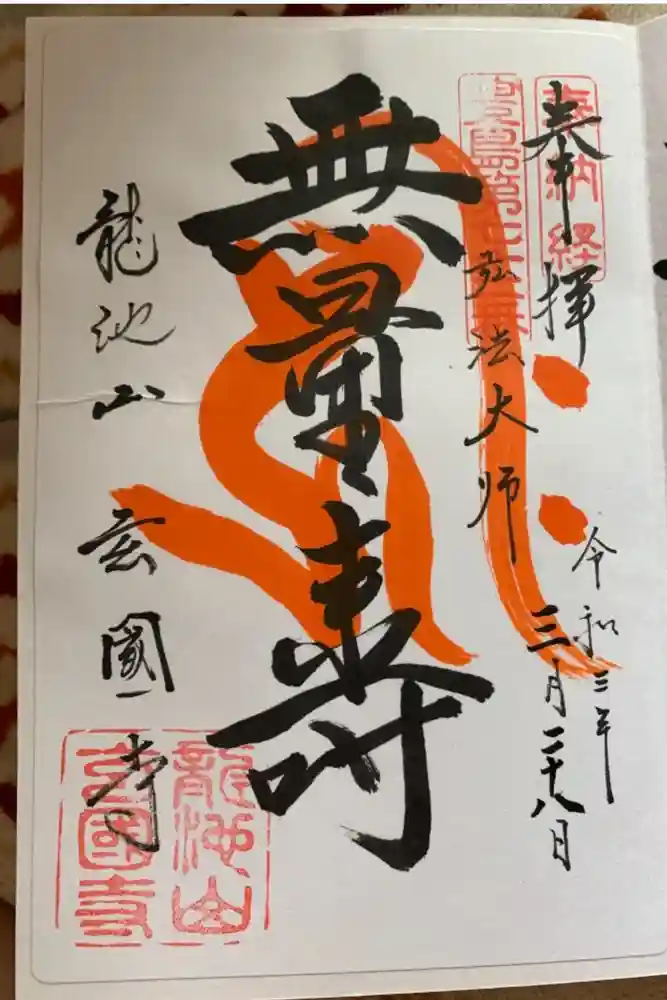 奉拝
奉納経
令和三年
三月二十八日
弘法大师
無量壽
龍池山 玄國寺
龍池山
玄國寺